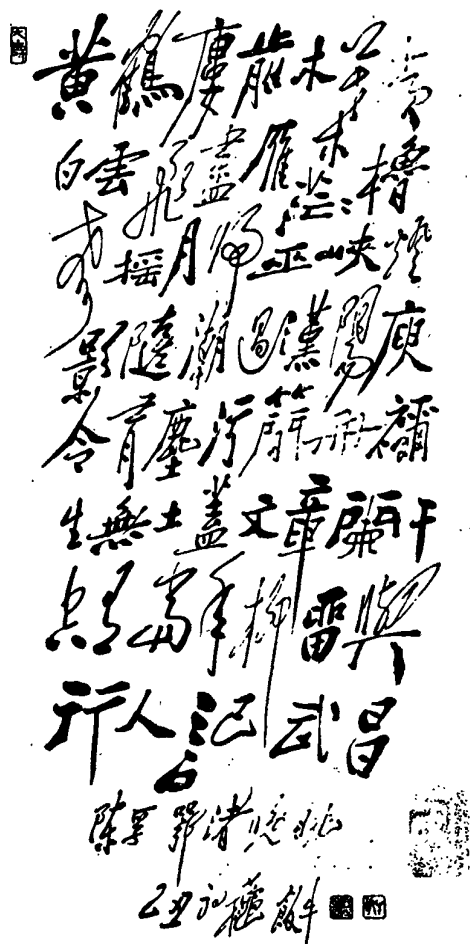 黃鶴廔前木葉黃
白雲飛盡雁茫茫櫓
聲搖月歸巫峽燈
影隨潮過漢陽庾
令有塵污簡冊禰
生無土蓋文章闌干
只有當年柳留與
行人記武昌
陳孚鄂渚晚眺
乙丑初秋飯牛